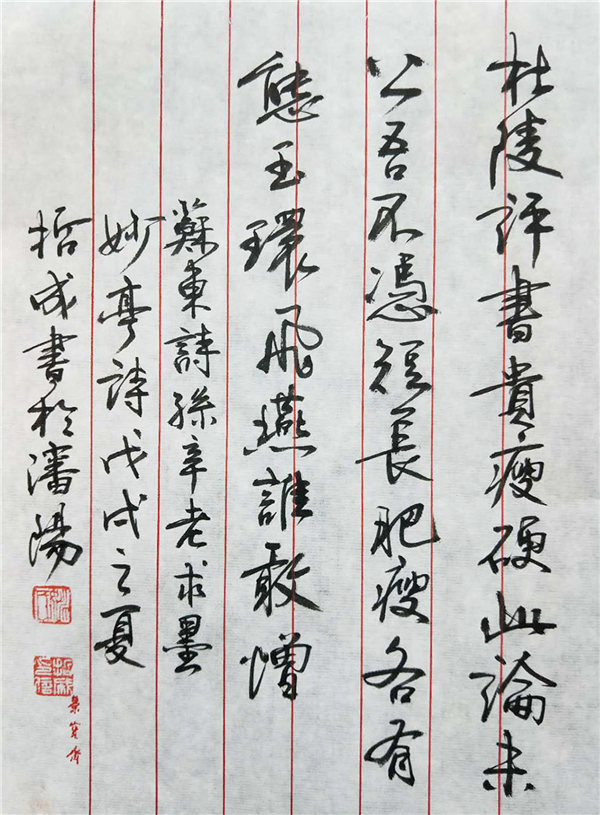 杜陵評書貴瘦硬此論未
公吾不憑短長肥瘦各有
態玉環飛燕誰敢憎
蘇東詩孫辛老求墨
妙亭詩戊戌之夏
哲成書於瀋陽
榮寶齋